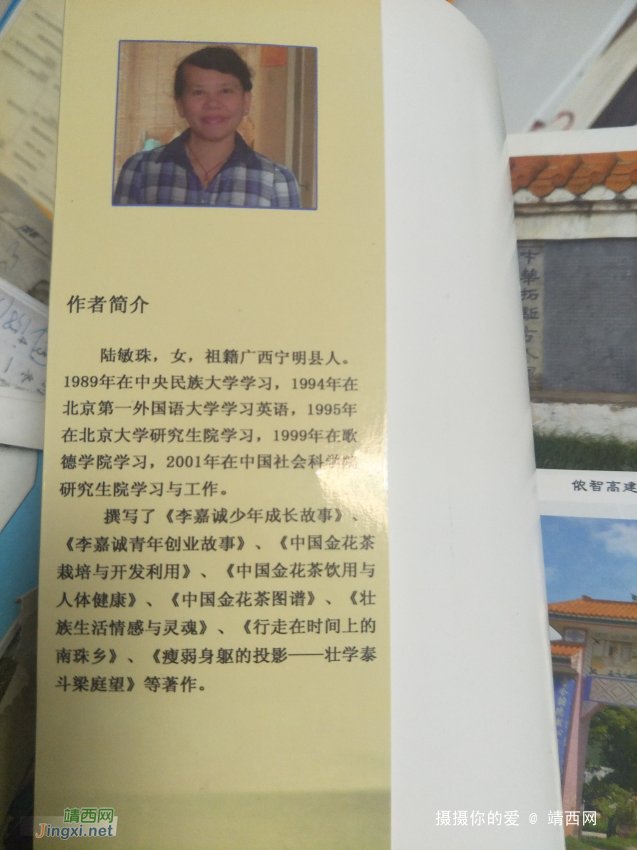 作者简介
陆敏珠，女，祖籍广西宁明县人。
1989年在中央民族大学学习，1994年在
北京第一外国语大学学习英语，1995年
在北京大学研究生院学习，1999年在歌
德学院学习，2001年在中国社会科学院
研究生院学习与工作。
撰写了《李嘉诚少年成长故事》、
《李嘉诚青年创业故事》、《中国金花茶
栽培与开发利用》、《中国金花茶饮用与
人体健康》、《中国金花茶图谱》、《壮
族生活情感与灵魂》、《行走在时间上的
南珠乡》、《瘦弱身躯的投影——壮学泰
斗梁庭望》等著作。
中华拓疆古人
侬智高建
靖西网
Jingxi.net
摄摄你的爱 @ 靖西网